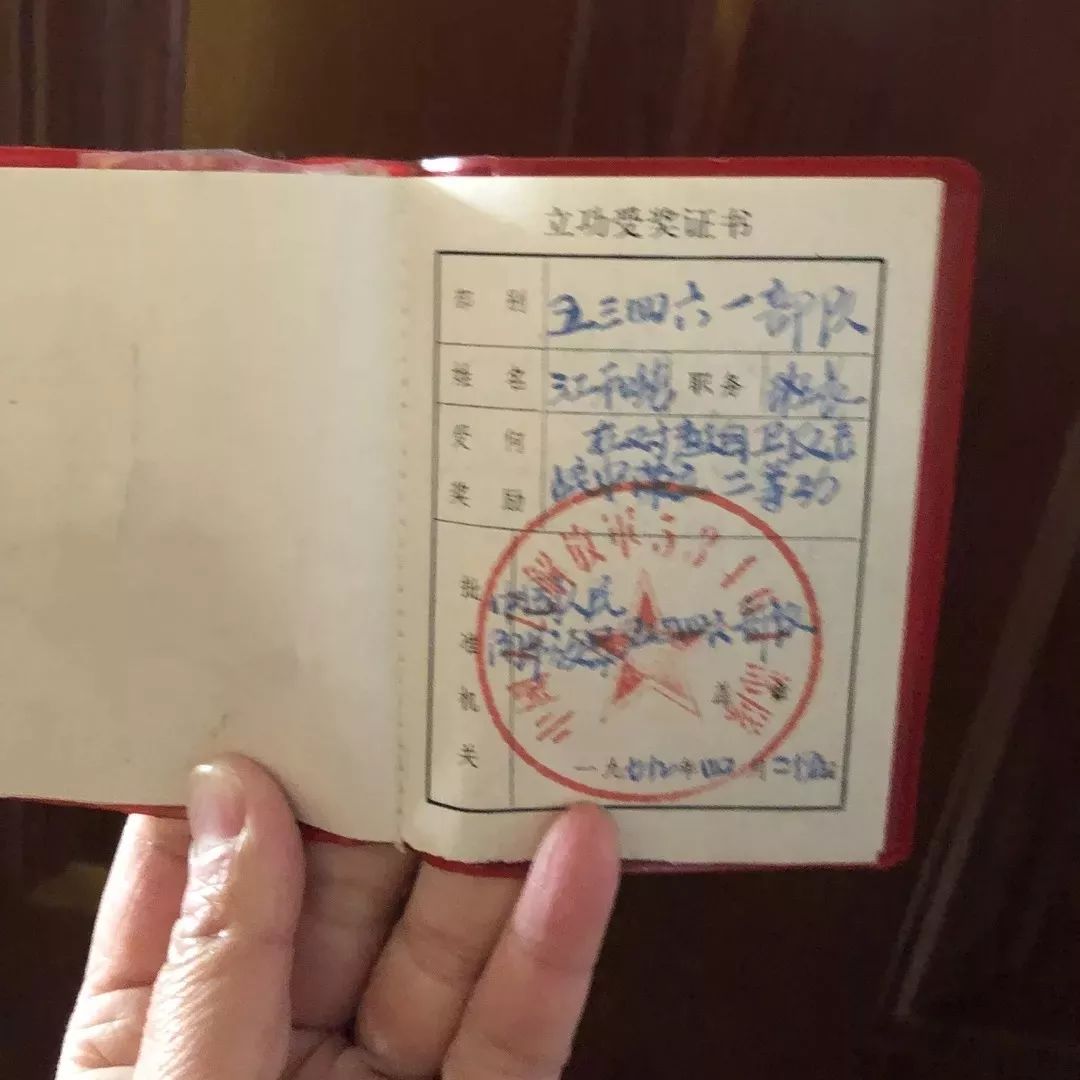 立功受奖证书
部别 五三四六一部队
姓名 江 职务 班长
受何 在对越自卫反击
奖励 战中荣立二等功
批
准 五三四六一部队
机 盖章
关
一九七九年四月二十五
解放军53461部队